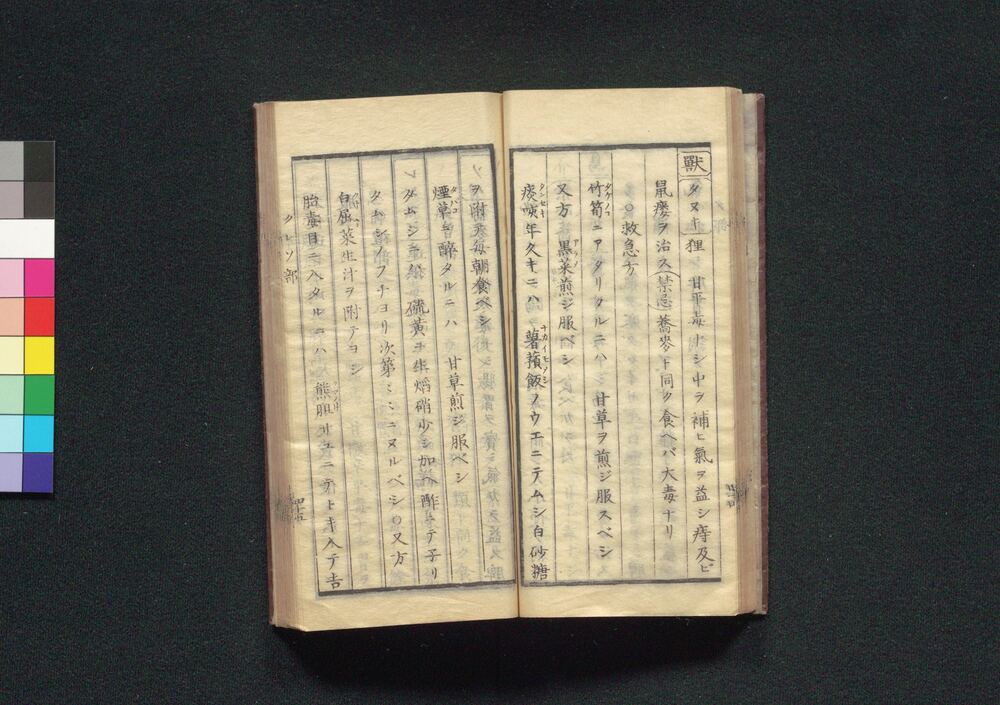 獸 タヌキ 狸 甘平毒ナシ中ヲ補ヒ氣ヲ益シ痔及ビ
鼠瘻ヲ治ス(禁忌)蕎麥ト同ク食ヘバ大毒ナリ
○救急方
竹筍ニアタリタルニハ 甘草ヲ煎ジ服スベシ
又方 黒菜煎ジ服ベシ
痰咳年久キニハ 薯蕷飯ノウエニテムシ白砂糖
ヲ附テ毎朝食ベシ
煙草ニ醉タルニハ 甘草煎ジ服ベシ
タムシニ 硫黄 焔硝少シ加ヘ酢ニテ子リ
タムシノフチヨリ次第ニミニヌルベシ○又方
白屈菜生汁ヲ附テヨシ
胎毒目ニ入タルニハ 熊胆サユニテトキ入テ吉